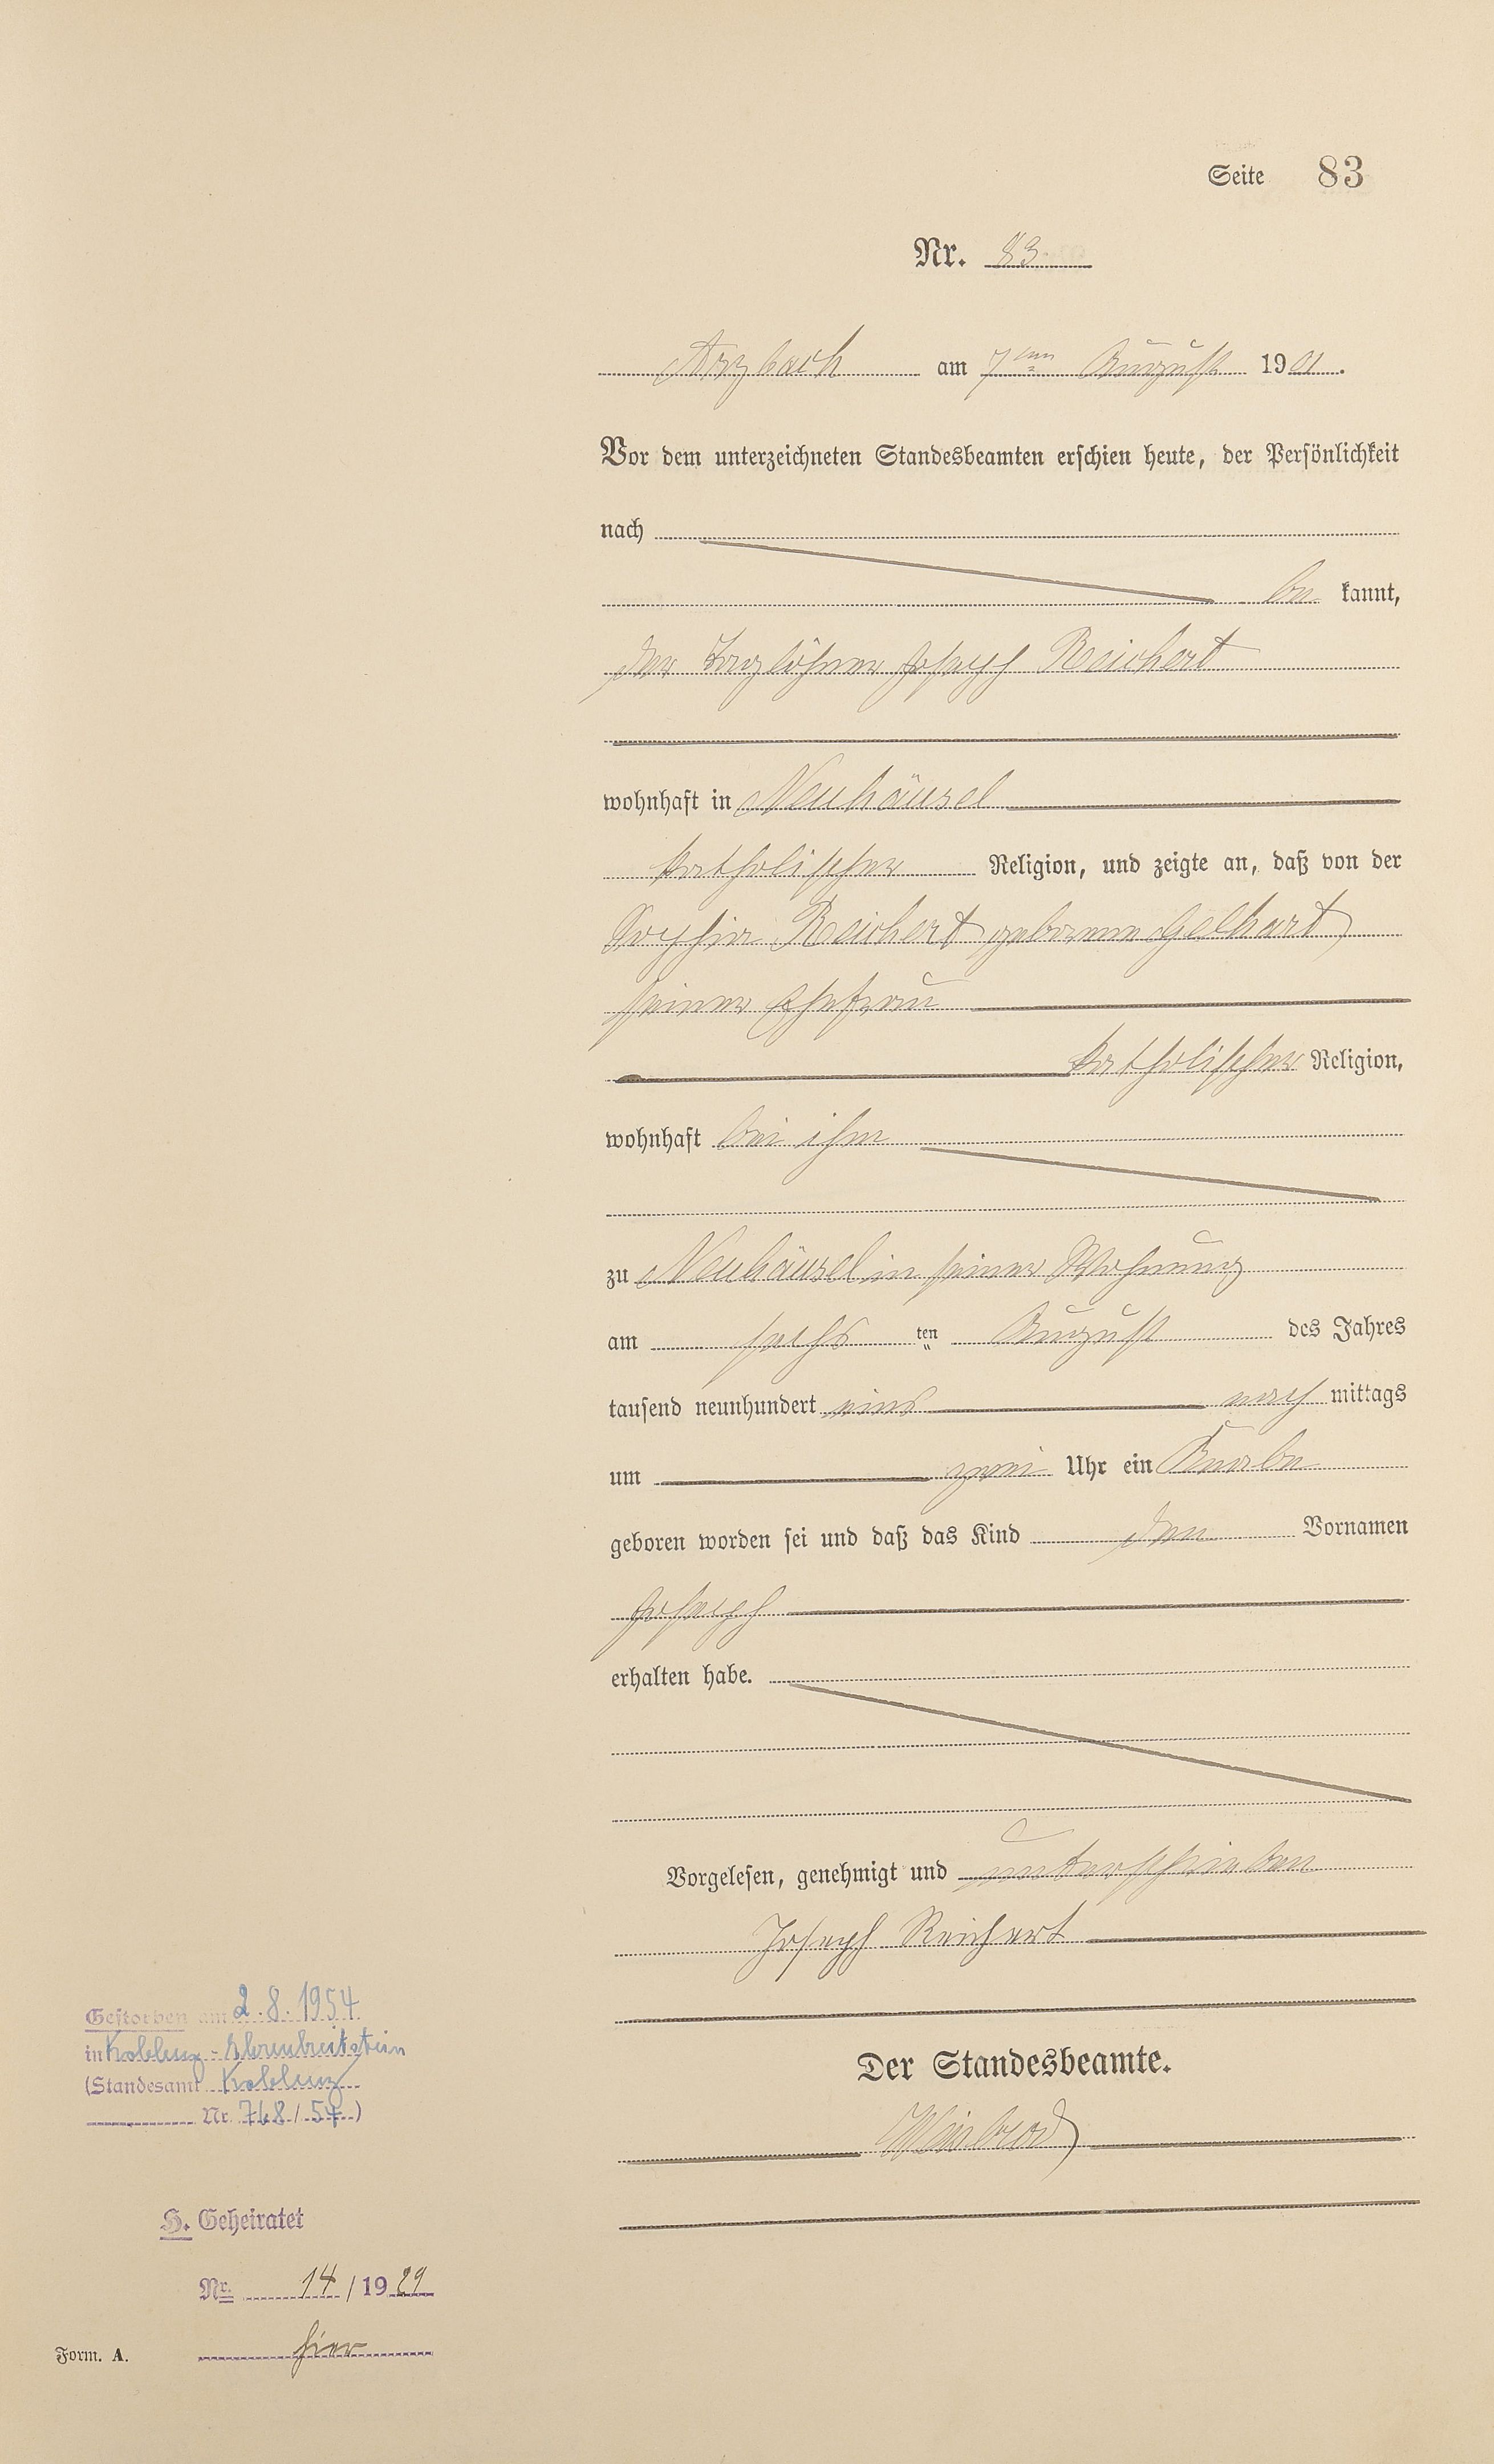 Seite 83
Nr. 83
Arzbach am 7ten August 1901.
Vor dem unterzeichneten Standesbeamten erschien heute, der Persönlichkeit
nach
be kannt,
der Taglöhner Joseph Reichert
wohnhaft in Neuhäusel
katholischer Religion, und zeigte an, daß von der
Sophia Reichert geborene Gelhart
seiner Ehefrau
katholischer Religion,
wohnhaft bei ihm
zu Neuhäusel in seiner Wohnung
am sechs ten August des Jahres
tausend neunhundert eins nach mittags
um zwei Uhr ein Knabe
geboren worden sei und daß das Kind den Vornamen
Joseph
erhalten habe.
Vorgelesen, genehmigt und unterschrieben
Joseph Reichert
Der Standesbeamte.
Gestorben am 2.8.1954
in Koblenz-Ehrenbreitstein
(Standesamt Koblenz
Nr. 768/54)
H. Geheiratet
Nr. 14/1929
hier
Form. A.